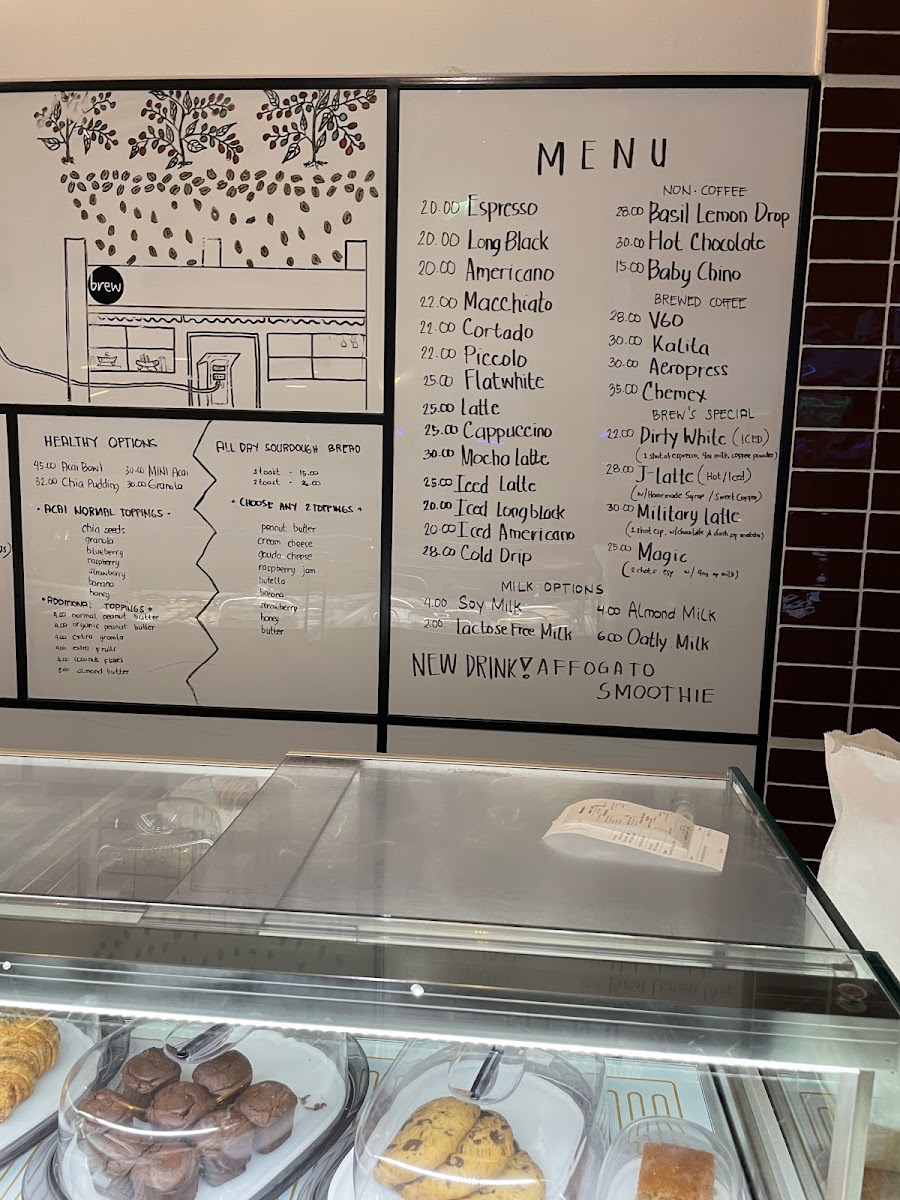 brew
HEALTHY OPTIONS
45.00 Acai Bowl 30.00 MINI Acai
32.00 Chia Pudding 30.00 Granola
• ACAI NORMAL TOPPINGS •
chia seeds
granola
blueberry
raspberry
strawberry
banana
honey
• ADDITIONAL TOPPINGS •
4.00 normal peanut butter
4.00 organic peanut butter
4.00 extra granola
4.00 extra fruits
4.00 coconut flakes
5.00 almond butter
ALL DAY SOURDOUGH BREAD
1 toast - 15.00
2 toast -
• CHOOSE ANY 2 TOPPINGS •
peanut butter
cream cheese
gouda cheese
raspberry jam
nutella
banana
strawberry
honey
butter
MENU
20.00 Espresso
20.00 Long Black
20.00 Americano
22.00 Macchiato
22.00 Cortado
22.00 Piccolo
25.00 Flatwhite
25.00 Latte
25.00 Cappuccino
30.00 Mocha latte
25.00 Iced Latte
20.00 Iced Longblack
20.00 Iced Americano
28.00 Cold Drip
NON-COFFEE
28.00 Basil Lemon Drop
30.00 Hot Chocolate
15.00 Baby Chino
BREWED COFFEE
28.00 V60
30.00 Kalita
30.00 Aeropress
35.00 Chemex
BREW'S SPECIAL
22.00 Dirty White (ICED)
(1 shot of espresso, milk, coffee powder)
28.00 J-latte (Hot/Iced)
(w/Homemade Syrup / Sweet Creamer)
30.00 Military latte
(1 shot esp. w/chocolate & dash of matcha)
25.00 Magic
(2 shots esp w/ milk)
MILK OPTIONS
4.00 Soy Milk
2.00 Lactose Free Milk
4.00 Almond Milk
6.00 Oatly Milk
NEW DRINK! AFFOGATO
SMOOTHIE